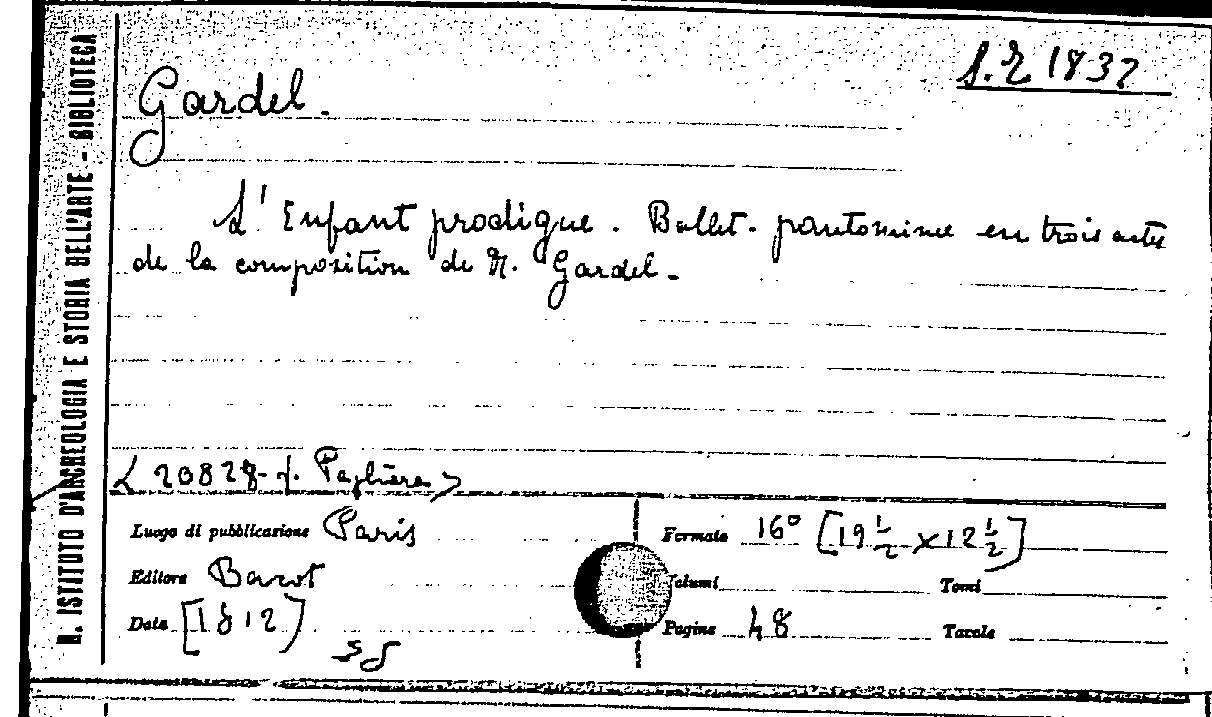 R. ISTITUTO D'ARCHEOLOGIA E STORIA DELL'ARTE - BIBLIOTECA
1832
Gardel.
L'Enfant prodigue. Ballet-pantomime en trois actes
de la composition de M. Gardel.
Luogo di pubblicazione Paris
Editore Barot
Data [1812]
Formato 16° [19 1/2 x 12 1/2]
Volumi
Tomi
Pagine 48
Tavole